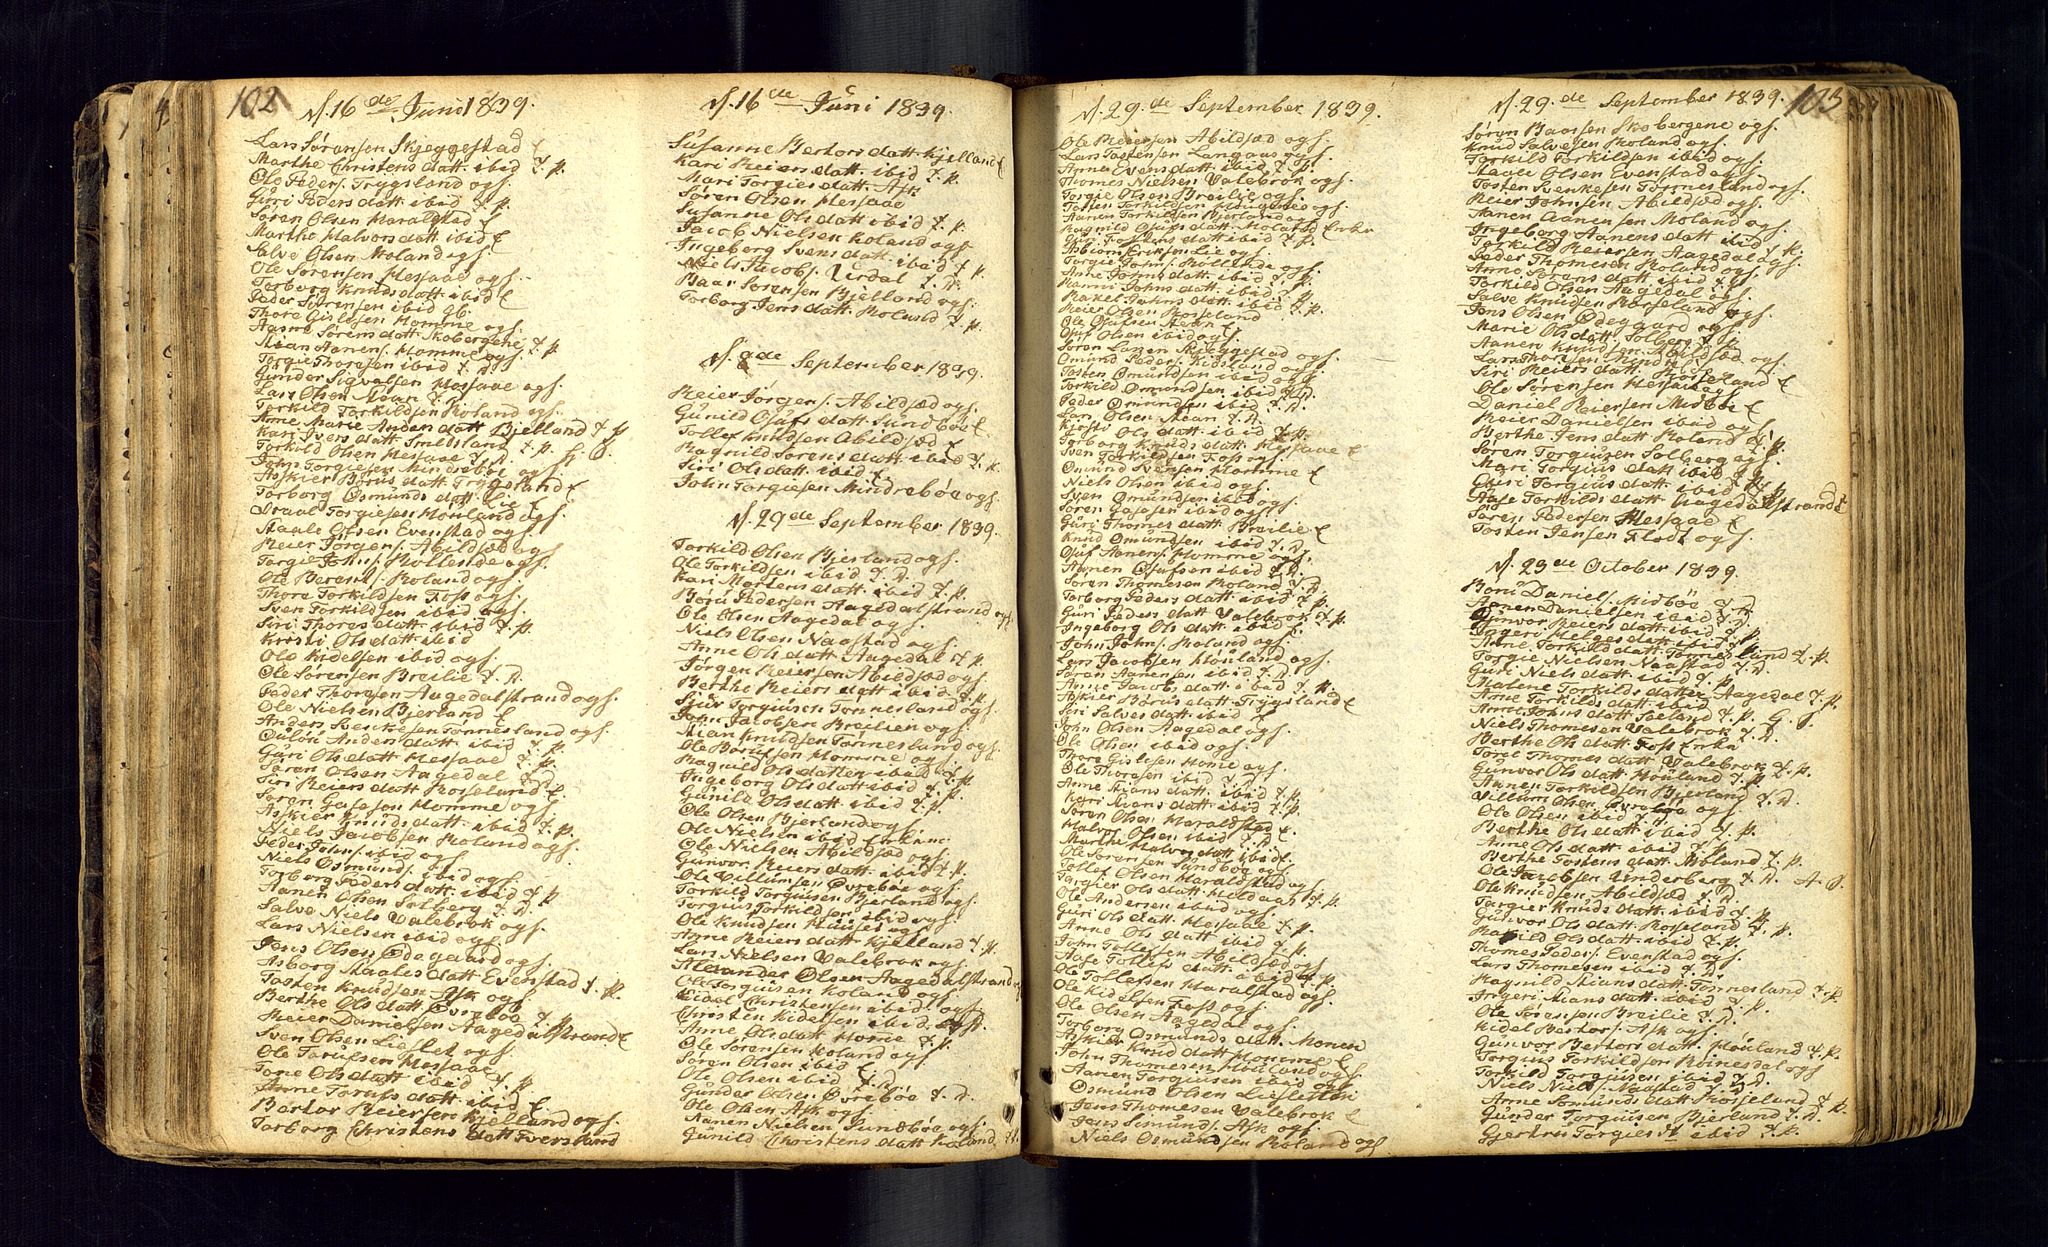 102
d. 16 de Juni 1839.
Lars Sørensen Skjeggestad
Marthe Christens datt. ibid t. p.
Ole Peders. Trygsland ogs.
Guri Peders datt ibid t. p.
Søren Olsen Haralstad
Marthe Halvors datt ibid
Salve Olsen Roland ogs.
Ole Sørensen Messaae ogs.
Torborg Knuds datt ibid
Peder Sørensen ibid
Thore Gislesen Homme ogs.
Aasne Sørens datt Skobergene t. p.
Stian Aanens. Homme ogs.
Torgie Thoresen ibid t. D.
Gunder Sigvalsen Messaae ogs.
Lars Olsen Moan t. D.
Torkild Torkildsen Roland ogs.
Anne Marie Anders datt Bjelland t. p.
Kari Ivers datt t. p.
Torkild Olsen Messaae t. D.
John Torgiesen Mindrebøe ogs.
Asskier Børus datt Trygsland
Torborg Osmunds datt Lie
Draal Torgiesen Houland ogs.
Staale Olsen Evenstad ogs.
Reier Jørgens. Abildsæd ogs.
Torgie Johns. Rollende ogs.
Ole Berents. Roland ogs.
Thore Torkildsen Foss ogs.
Sven Torkildsen ibid ogs.
Siri Thores datt ibid t. p.
Kirsti Ols datt ibid
Ole Kidelsen ibid ogs.
Ole Sørensen Breilie t. D.
Peder Thoresen Aagedalstrand ogs.
Ole Nielsen Bjerland
Anders Svenkesen Tønnesland ogs.
Anders datt ibid t. p.
Guri Ols datt Messaae t. p.
Søren Olsen Aagedal t. D.
Siri Reiers datt Rosseland
Søren Gasesen Homme ogs.
Asskier Knuds datt ibid t. p.
Niels Jacobsen Roland ogs.
Peder Johns. ibid ogs.
Niels Osmunds. ibid ogs.
Torborg Peders datt. ibid t. p.
Aanen Olsen Solberg t. D.
Salve Niels. Valebrok ogs.
Lars Nielsen ibid ogs.
Jens Olsen Ødegaard ogs.
Asborg Staales datt Evenstad t. p.
Tosten Knudsen Ask ogs.
Berthe Ols datt Øvrebøe t. p.
Reier Danielsen Aagedalstrand
Sven Olsen Lieslet ogs.
Ole Tarufsen Messaae
Tone Ols datt ibid t. p.
Anne Tarufs datt ibid
Bertor Reiersen Kjelland ogs.
Torborg Christens datt
d. 16 de Juni 1839
Susanne Bertors datt Kjelland
Kari Reiers datt. ibid t. p.
Mari Torgies datt. Ask
Søren Olsen Messaae
Susanne Ols datt ibid t. p.
Jacob Nielsen Roland ogs.
Ingeborg Svens datt. ibid t. p.
Niels Jacobs. Urdal t. D.
Baar Sørensen Bjelland ogs.
Torborg Jens datt. Roland t. p.
d. 8 de September 1839.
Reier Jørgens. Abildsæd ogs.
Gunild Ojufs datt Sundbøe
Tollef Knudsen Abildsæd
Ragnild Sørens datt ibid t. p.
Siri Ols datt ibid
John Torgiesen Mindrebøe ogs.
d. 29 de September 1839.
Torkild Olsen Bjerland ogs.
Ole Torkildsen ibid t. D.
Kari Mortens datt ibid t. p.
Børu Pedersen Aagedalstrand ogs.
Ole Olsen Aagedal ogs.
Niels Olsen Naastad ogs.
Anne Ols datt Aagedal t. p.
Jørgen Reiersen Abildsæd ogs.
Berthe Reiers datt ibid t. p.
Sjur Torgiusen Tønnesland ogs.
John Jacobsen Breilien ogs.
Stian Knudsen Tønnesland ogs.
Ole Børusen Homme ogs.
Ragnild Ols datter ibid t. p.
Ingeborg Ols datt ibid t. p.
Gunild Ols datt ibid t. p.
Ole Olsen Bjerland ogs.
Ole Nielsen ibid
Ole Nielsen Abildsæd ogs.
Gunvor Reiers datt ibid t. p.
Ole Villumsen Øvrebøe ogs.
Torkild Torgiusen Bjerland ogs.
Torgius Torkildsen ibid ogs.
Ole Knudsen ogs.
Anne Reiers datt Kjelland t. p.
Lars Nielsen Valebrok ogs.
Alexander Olsen Aagedalstrand
Ole Torgiusen Roland ogs.
Kidel Christensen ibid ogs.
Christen Kidelsen ibid ogs.
Anne Ols datt Home t. p.
Ole Sørensen Roland ogs.
Søren Olsen ibid
Ole Olsen ibid t. D.
Gunder Olsen Øvrebøe t. D.
Ole Olsen Ask ogs.
Aanen Nielsen Sundbøe ogs.
Gunild Christens datt Roland t. p.
d. 29. de September 1839.
Ole Reiersen Abildsæd ogs.
Lars Tostensen Langaas ogs.
Anne Evens datt ibid t. p.
Thomes Nielsen Valebrok ogs.
Torgie Olsen Breilie ogs.
Tosten Torkildsen ogs.
Aanen Torkildsen Bjerland ogs.
Ragnild Ojufs datt Roland Enke
Guri Tostens datt ibid t. p.
Abiam Eriksen Lie ogs.
Torgie Johns. Rollende ogs.
Anne Johns datt ibid t. p.
Hanni Johns datt. ibid t. p.
Rakel Johns datt ibid t. p.
Reier Olsen Rosseland
Ole Ojufsen Moan
Ojuf Olsen ibid ogs.
Søren Larsen Skjeggestad ogs.
Osmund Peders. Kidsland ogs.
Tosten Osmundsen ibid ogs.
Torkild Osmundsen ibid t. D.
Peder Osmundsen ibid t. D.
Lars Olsen Moan t. D.
Kirsti Ols datt ibid t. p.
Torborg Knuds datt Messaae
Sven Torkildsen Foss ogs.
Osmund Svensen Homme
Niels Olsen ibid ogs.
Sven Osmundsen ibid ogs.
Søren Gasesen ibid ogs.
Guri Thomes datt Breilie
Knud Osmundsen ibid t. D.
Ojuf Aanens. Homme ogs.
Aanen Ojufsen ibid t. D.
Søren Thomesen Roland t. D.
Torborg Peders datt. ibid t. p.
Guri Peders datt Valebrok t. p.
Ingeborg Ols datt ibid
John Johns. Roland ogs.
Lars Jacobsen Houland ogs.
Søren Aanensen ibid t. D.
Anne Jacobs datt ibid t. p.
Asskier Børus datt Trygsland
Siri Salves datt ibid
John Olsen Aagedal ogs.
Ole Olsen ibid ogs.
Thore Gislesen Home ogs.
Ole Thoresen ibid t. D.
Anne Stians datt ibid t. p.
Kari Stians datt ibid t. p.
Søren Olsen Haraldstad
Halvor Olsen ibid t. D.
Marthe Halvors datt ibid
Ole Sørensen Sundbøe ogs.
Tollef Olsen Haralstad ogs.
Torgier Ols datt t. p.
Ole Andersen ibid ogs.
Guri Ols datt Messaae t. p.
Anne Ols datt ibid t. p.
John Tollefsen Abildsæd ogs.
Aase Tollefs datt ibid t. p.
Ole Tollefsen Haralstad ogs.
Ole Kidelsen Foss ogs.
Ole Olsen Aagedal ogs.
Torborg Osmunds datt Monen
Asskier Knud datt Homme
John Thomesen Houland ogs.
Aanen Torgiusen ibid ogs.
Osmund Olsen Liesletten
Jens Thomesen Valebrok
Jens Simunds. Ask ogs.
Niels Osmundsen Roland ogs
103
d. 29. de September 1839.
Søren Baarsen Skobergene ogs.
Knud Salvesen Roland ogs.
Torkild Torkildsen ibid ogs.
Staale Olsen Evenstad ogs.
Tosten Svenkesen Tønnesland ogs.
Reier Johnsen Abildsæd ogs.
Aanen Aanensen Roland ogs.
Ingeborg Aanens datt ibid
Torkild Reiersen Aagedal t. p.
Peder Thomesen Roland ogs.
Anne Sørens datt ibid t. p.
Torkild Olsen Aagedal ogs.
Salve Knudsen Rosseland ogs.
Jens Olsen Ødegaard ogs.
Marie Ols datt Solberg t. p.
Aanen Knudsen Abildsæd ogs.
Lars Thoresen Home ogs.
Siri Reiers datt Rosseland
Ole Sørensen Messaae
Daniel Reiersen Midbøe
Reier Danielsen ibid ogs.
Berthe Jens datt Roland t. p.
Søren Torgiusen Solberg ogs.
Mari Torgius datt ibid
Guri Torgius datt ibid t. p.
Aase Torkilds datt Aagedalstrand
Søren Pedersen Messaae
Tosten Jensen Flodt ogs.
d. 23 de October 1839.
Børu Daniels. Midbøe t. D.
Aanen Danielsen ibid t. D.
Gunvor Reiers datt ibid t. p.
Ingeri Helges datt ibid t. p.
Anne Torkilds datt Tønnesland t. p.
Torgie Nielsen Naastad t. D.
Guri Niels datt ibid t. p.
Malene Torkilds datter Aagedal t. p.
Anne Torkilds datt ibid
Anne Johns datt t. p. G. J.
Niels Thomesen Valebrok t. D.
Berthe Ols datt Foss Enke
Torel Thomes datt Valebrok t. p.
Gunvor Ols datt Houland t. p.
Aanen Torkildsen Bjerland t. D.
Villum Olsen Øvrebøe ogs.
Ole Olsen ibid t. D.
Berthe Ols datt ibid t. p.
Anne Ols datt ibid t. p.
Berthe Tostens datt Roland t. p.
Ole Jacobsen Underberg t. D. A. J.
Ole Knudsen Abildsæd t. D.
Torgier Knuds datt ibid t. p.
Gunvor Ols datt Rosseland t. p.
Ragnild Ols datt ibid t. p.
Thomes Peders. Evenstad ogs.
Lars Thomesen ibid t. D.
Ragnild Stians datt Tønnesland t. p.
Ingeri Stians datt ibid t. p.
Ole Sørensen Breilie t. D.
Kidel Bertors. Ask ogs.
Gunvor Bertors datt. Houland t. p.
Torgius Torkildsen Roinesdal ogs
Torkild Torgiusen ibid t. D.
Niels Niels. Naastad t. D.
Anne Somunds datt Rosseland t. p.
Gunder Torgiusen Bjerland t. D.
Gjertru Torgies dt ibid t. p.